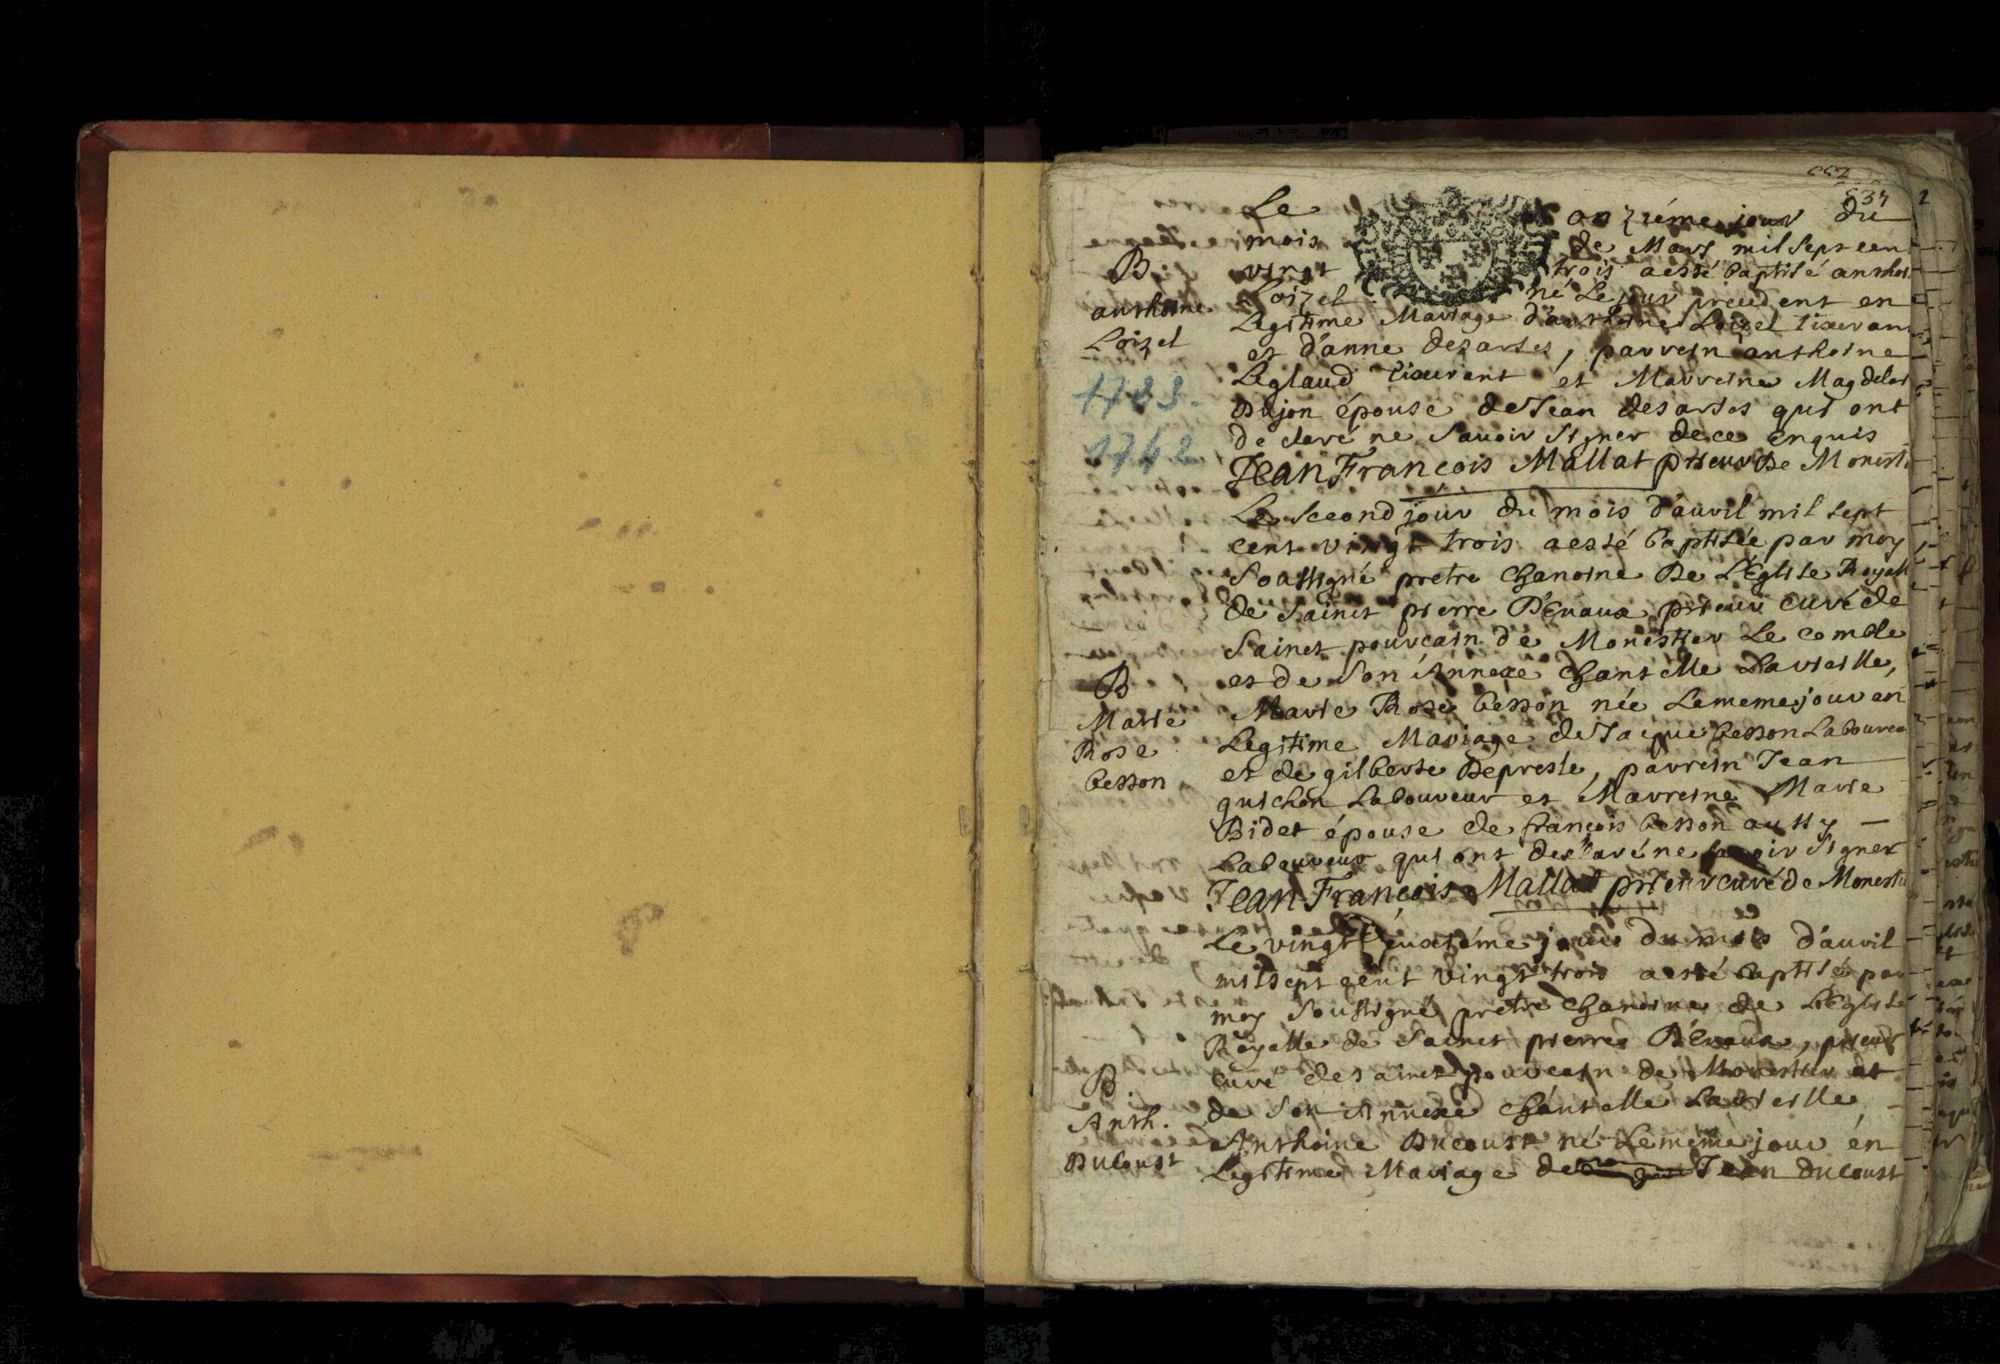 537
2
Le onziéme jour du
mois de Mars mil sept cen
vingt trois a esté baptisé anthoi
Loizel né Le jour precedent en
Legitime Mariage d'anthoine Loizel tixeran
et d'anne desartes, parrein anthoine
Leglaud tixerant et Marreine Magdelai
Dujon épouse de Jean desartes qui ont
declaré ne savoir signer de ce enquis
Jean François Mallat prieur De Monesti
B.
anthoine
Loizel
1723.
1742
Le second jour du mois d'avril mil sept
cent vingt trois a esté baptisée par moy
Soussigné pretre Chanoine De L'Eglise Royall
de Sainct pierre D'Evaux, prieur curé de
Sainct pourcain de Monestier Le comble
et de Son Annexe Chantelle Lavieille,
Marie Rose besson née Le meme jour en
Legitime Mariage de Jacque besson Laboureu
et de gilberte Depresle, parrein Jean
guichon Laboureur et Marreine Marie
Bidet épouse de françois besson aussy
Laboureur qui ont declaré ne savoir signer
Jean François Mallat prieur curé de Monestie
B
Marie
Rose
besson
Le vingt deuxiéme jour du mois d'avril
mil sept cent vingt trois a esté baptisé par
moy Soussigné pretre Chanoine de L'Eglise
Royalle de Sainct pierre D'Evaux, prieur
curé de sainct pourcain de Monestier et
de Son Annexe Chantelle Lavieille,
Anthoine Ducoust né Le meme jour en
Legitime Mariage de Jean ducoust
B.
Anth.
Ducoust